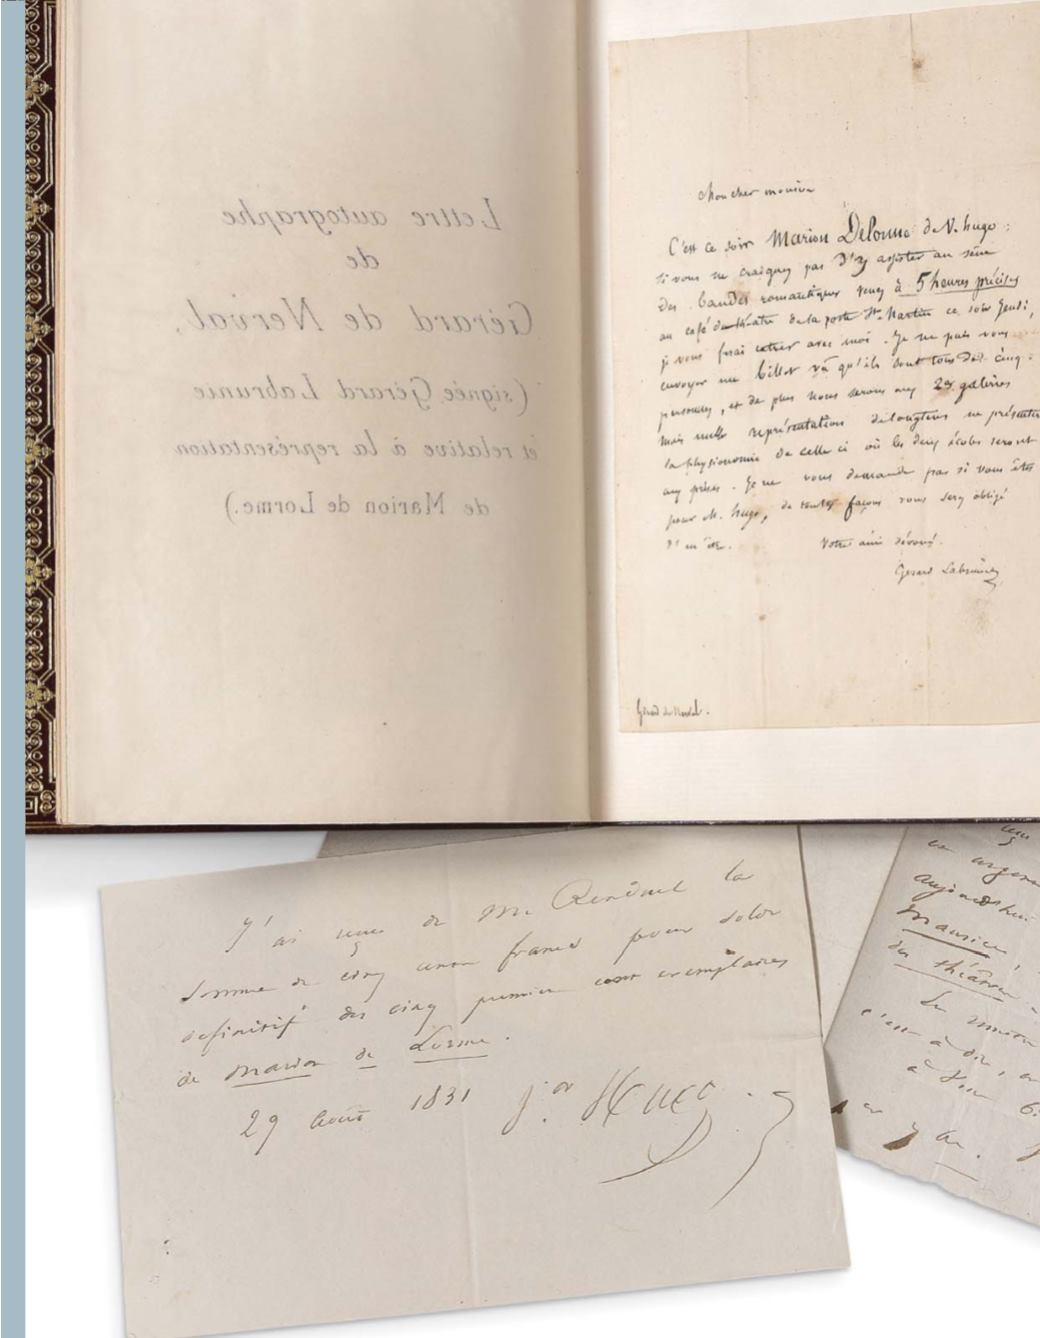 Lettre autographe
de
Gérard de Nerval,
(signée Gérard Labrunie
et relative à la représentation
de Marion de Lorme.)
Mon cher monsieur
C'est ce soir Marion Delorme de V. hugo :
si vous ne craignez pas d'y assister au sein
des bandes romantiques venez à 5 heures précises
au café du théâtre de la porte St Martin ce soir Jeudi,
je vous ferai entrer avec moi. Je ne puis vous
envoyer un billet vû qu'ils sont tous de cinq
personnes, et de plus nous serons aux 2es galeries
mais nulle représentation de longtems ne présentera
la physionomie de celle ci où les deux écoles seront
aux prises. Je ne vous demande pas si vous êtes
pour M. hugo, de toutes façons vous serez obligé
d'en être. Votre ami dévoué.
Gerard Labrunie
Gérard de Nerval.
J'ai reçu de Mr Renduel la
somme de cinq cents francs pour solde
définitif des cinq premiers cent exemplaires
de Marion de Lorme.
29 août 1831 Hugo
en argent
aujourd'hui
Maurice,
des théâtres
c'est à dire,